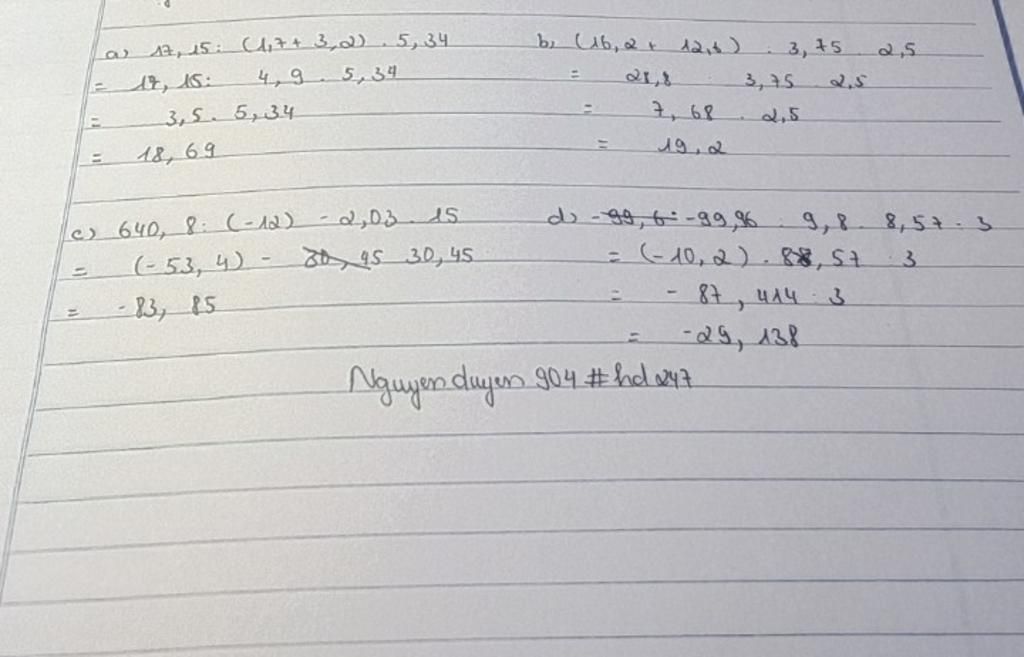 a) 17,15 : (1,7 + 3,2) . 5,34
= 17,15 : 4,9 . 5,34
= 3,5 . 5,34
= 18,69
b) (16,2 + 12,6) : 3,75 . 2,5
= 28,8 : 3,75 . 2,5
= 7,68 . 2,5
= 19,2
c) 640,8 : (-12) - 2,03 . 15
= (-53,4) - 30,45 30,45
= -83,85
d) -99,6 : -99,96 : 9,8 . 8,57 : 3
= (-10,2) . 8,57 : 3
= - 87,414 : 3
= -29,138
Nguyenduyen 904 #hd247